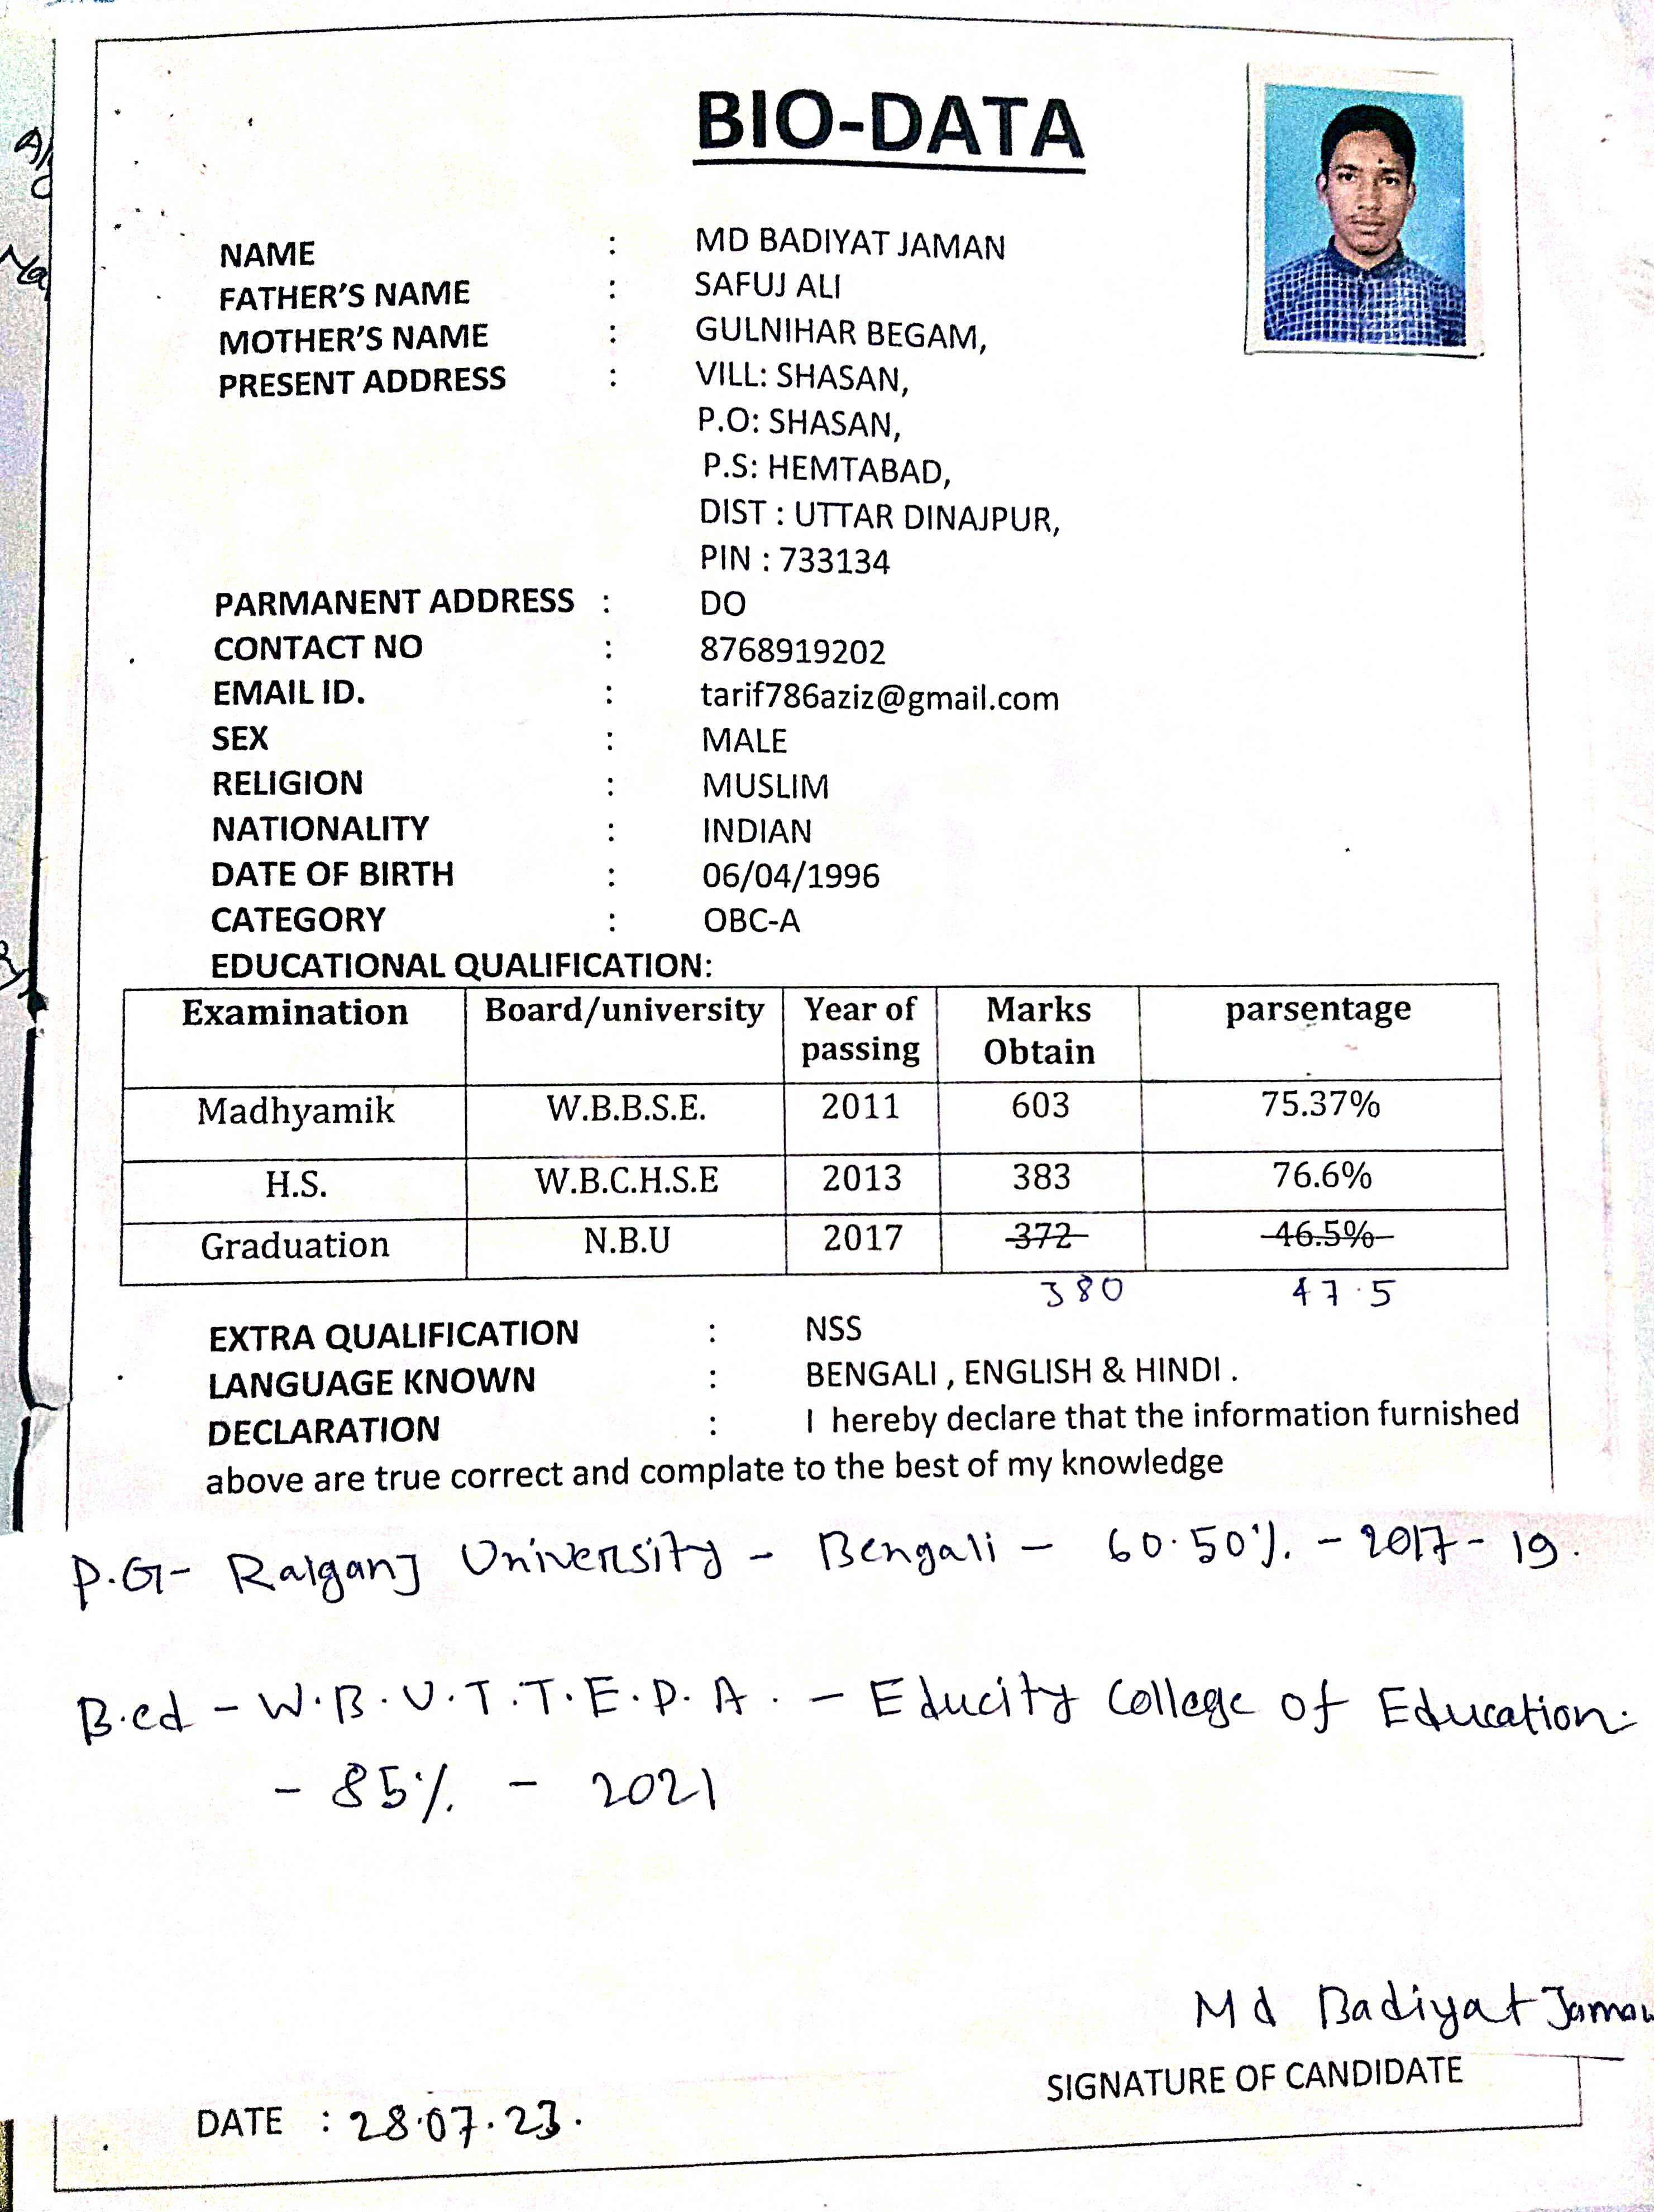 BIO-DATA
NAME : MD BADIYAT JAMAN
FATHER'S NAME : SAFUJ ALI
MOTHER'S NAME : GULNIHAR BEGAM,
PRESENT ADDRESS : VILL: SHASAN,
P.O: SHASAN,
P.S: HEMTABAD,
DIST : UTTAR DINAJPUR,
PIN : 733134
PARMANENT ADDRESS : DO
CONTACT NO : 8768919202
EMAIL ID. : tarif786aziz@gmail.com
SEX : MALE
RELIGION : MUSLIM
NATIONALITY : INDIAN
DATE OF BIRTH : 06/04/1996
CATEGORY : OBC-A
EDUCATIONAL QUALIFICATION:
Examination Board/university Year of passing Marks Obtain parsentage
Madhyamik W.B.B.S.E. 2011 603 75.37%
H.S. W.B.C.H.S.E 2013 383 76.6%
Graduation N.B.U 2017 372 46.5%
380 47.5
EXTRA QUALIFICATION : NSS
LANGUAGE KNOWN : BENGALI , ENGLISH & HINDI .
DECLARATION : I hereby declare that the information furnished
above are true correct and complate to the best of my knowledge
P.G- Raiganj University - Bengali - 60.50%. - 2017-19.
B.ed - W.B.U.T.T.E.P.A. - Educity College of Education.
- 85%. - 2021
Md Badiyat Jaman
SIGNATURE OF CANDIDATE
DATE : 28.07.23.